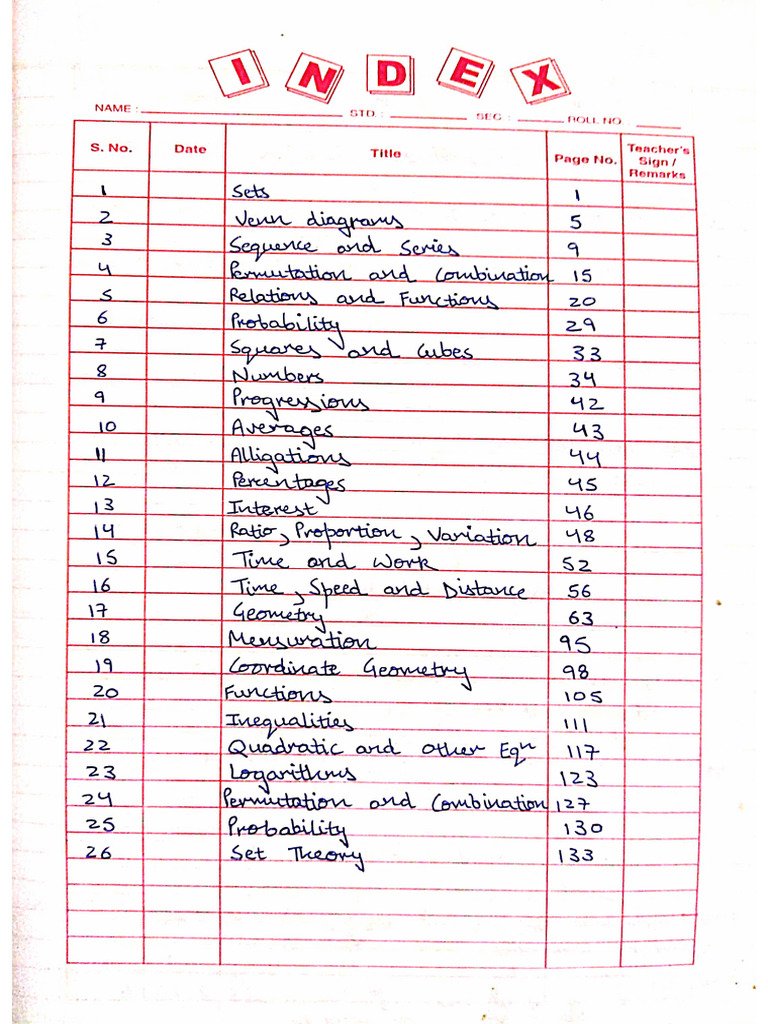 INDEX
NAME : STD. : SEC. : ROLL NO. :
S. No. Date Title Page No. Teacher's Sign / Remarks
1 Sets 1
2 Venn diagrams 5
3 Sequence and Series 9
4 Permutation and Combination 15
5 Relations and Functions 20
6 Probability 29
7 Squares and Cubes 33
8 Numbers 34
9 Progressions 42
10 Averages 43
11 Alligations 44
12 Percentages 45
13 Interest 46
14 Ratio, Proportion, Variation 48
15 Time and Work 52
16 Time, Speed and Distance 56
17 Geometry 63
18 Mensuration 95
19 Coordinate Geometry 98
20 Functions 105
21 Inequalities 111
22 Quadratic and other Eqn 117
23 Logarithms 123
24 Permutation and Combination 127
25 Probability 130
26 Set Theory 133